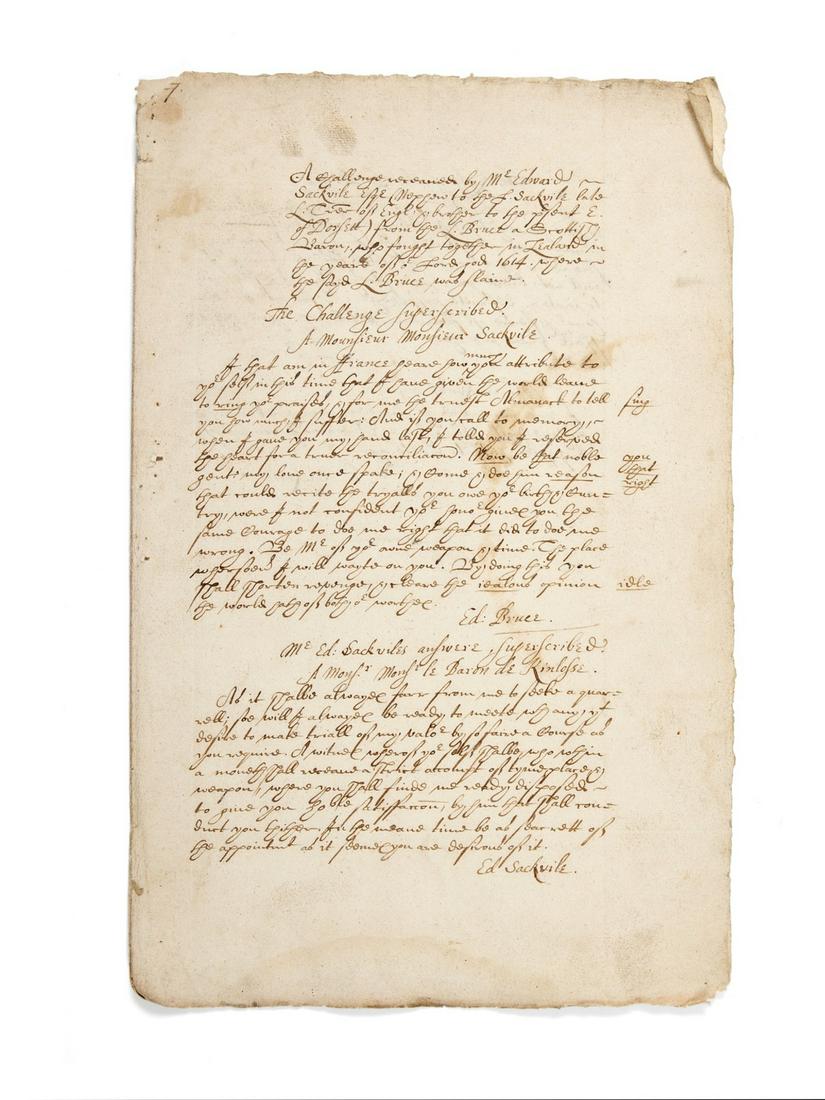 7
A Challenge receaued by Mr Edward
Sackvile Esqr (Nephew to the L. Sackvile late
L. Trer of Engl. & brother to the psent E.
of Dorsett) from the L. Bruce a Scottish
Baron, who fought together in Zeland in
the yeare of or Lord god 1614. where
the sayd L. Bruce was slaine.
The Challenge superscribed.
A Mounsieur Monsieur Sackvile.
I that am in ffrance heare how much you attribute to
yor self in this time that I have given the world leaue
to ring yor praises, & for me the truest Almanack to tell sing
you how much I suffer: And if you call to memory,
when I gaue you my hand last, I told you I reserued
the heart for a truer reconciliacon. Now be that noble you
gent my loue once spake; & Come & doe him reason that right
that could recite the tryalls you owe yor birth & Coun-
try, were I not confident yor honor giues you the
same Courage to doe me right that it did to doe me
wrong. Be Mr of yor owne weapon & time. The place
whersoeur I will wayte on you. By doing this you
shall shorten revenge, & cleare the iealous opinion idle
the world hath of both or worthes.
Ed: Bruce.
Mr Ed: Sackviles answere, superscribed.
A Monsr Monsr le Baron de Kinlosse.
As it shalbe alwayes farr from me to seeke a quar-
rell; soe will I alwayes be ready to meete wth any yt
desire to make triall of my valor by so faire a Course as
you require. A witnes wherof yor self shalbe, who within
a moneth shall receaue a strict account of tyme place &
weapon, where you shall finde me ready disposed
to giue you noble satisfaccon, by him that shall con-
duct you thither. In the meane time be as seacrett of
the appointmt as it seemes you are desirous of it.
Ed Sackvile.